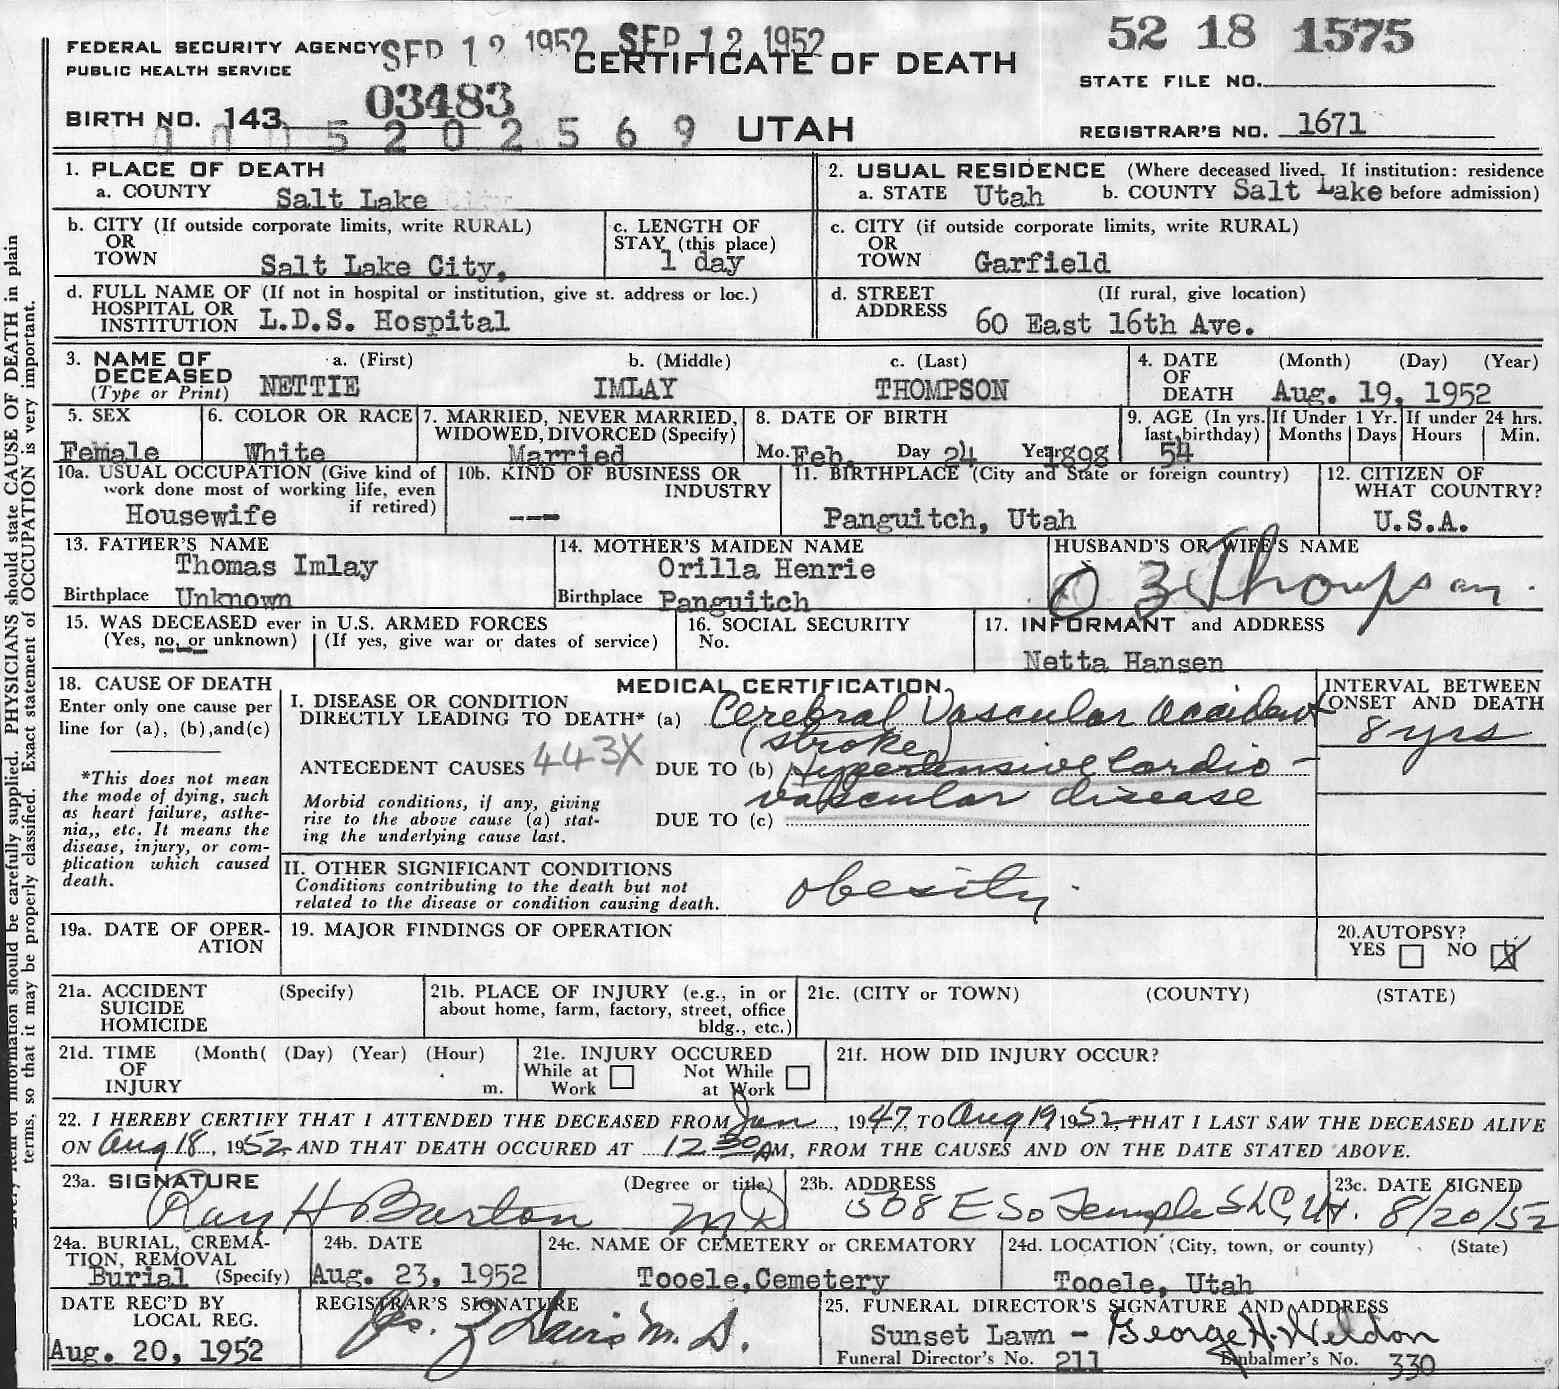 FEDERAL SECURITY AGENCY SEP 12 1952 SEP 12 1952 52 18 1575
PUBLIC HEALTH SERVICE CERTIFICATE OF DEATH
STATE FILE NO.
BIRTH NO. 143 03483
5202569 UTAH REGISTRAR'S NO. 1671
1. PLACE OF DEATH
a. COUNTY Salt Lake
2. USUAL RESIDENCE (Where deceased lived. If institution: residence
a. STATE Utah b. COUNTY Salt Lake before admission)
b. CITY (If outside corporate limits, write RURAL)
OR
TOWN Salt Lake City,
c. LENGTH OF
STAY (this place)
1 day
c. CITY (if outside corporate limits, write RURAL)
OR
TOWN Garfield
d. FULL NAME OF (If not in hospital or institution, give st. address or loc.)
HOSPITAL OR
INSTITUTION L.D.S. Hospital
d. STREET (If rural, give location)
ADDRESS 60 East 16th Ave.
3. NAME OF a. (First) b. (Middle) c. (Last)
DECEASED
(Type or Print) NETTIE IMLAY THOMPSON
4. DATE (Month) (Day) (Year)
OF
DEATH Aug. 19, 1952
5. SEX
Female
6. COLOR OR RACE
White
7. MARRIED, NEVER MARRIED,
WIDOWED, DIVORCED (Specify)
Married
8. DATE OF BIRTH
Mo. Feb. Day 24 Year 1898
9. AGE (In yrs.
last birthday)
54
If Under 1 Yr.
Months Days
If under 24 hrs.
Hours Min.
10a. USUAL OCCUPATION (Give kind of
work done most of working life, even
if retired)
Housewife
10b. KIND OF BUSINESS OR
INDUSTRY
---
11. BIRTHPLACE (City and State or foreign country)
Panguitch, Utah
12. CITIZEN OF
WHAT COUNTRY?
U.S.A.
13. FATHER'S NAME
Thomas Imlay
Birthplace Unknown
14. MOTHER'S MAIDEN NAME
Orilla Henrie
Birthplace Panguitch
HUSBAND'S OR WIFE'S NAME
O Z Thompson.
15. WAS DECEASED ever in U.S. ARMED FORCES
(Yes, no, or unknown) (If yes, give war or dates of service)
16. SOCIAL SECURITY
No.
17. INFORMANT and ADDRESS
Netta Hansen
18. CAUSE OF DEATH
Enter only one cause per
line for (a), (b), and (c)
*This does not mean
the mode of dying, such
as heart failure, asthe-
nia,, etc. It means the
disease, injury, or com-
plication which caused
death.
MEDICAL CERTIFICATION
I. DISEASE OR CONDITION
DIRECTLY LEADING TO DEATH* (a) Cerebral Vascular Accident
(stroke)
ANTECEDENT CAUSES 443X DUE TO (b) Hypertensive Cardio-
vascular disease
Morbid conditions, if any, giving
rise to the above cause (a) stat-
ing the underlying cause last.
DUE TO (c)
INTERVAL BETWEEN
ONSET AND DEATH
8 yrs
II. OTHER SIGNIFICANT CONDITIONS
Conditions contributing to the death but not
related to the disease or condition causing death.
obesity.
19a. DATE OF OPER-
ATION
19. MAJOR FINDINGS OF OPERATION
20. AUTOPSY?
YES NO X
21a. ACCIDENT (Specify)
SUICIDE
HOMICIDE
21b. PLACE OF INJURY (e.g., in or
about home, farm, factory, street, office
bldg., etc.)
21c. (CITY or TOWN) (COUNTY) (STATE)
21d. TIME (Month( (Day) (Year) (Hour)
OF
INJURY m.
21e. INJURY OCCURED
While at Not While
Work at Work
21f. HOW DID INJURY OCCUR?
22. I HEREBY CERTIFY THAT I ATTENDED THE DECEASED FROM Jan, 1947, TO Aug 19 1952, THAT I LAST SAW THE DECEASED ALIVE
ON Aug 18, 1952 AND THAT DEATH OCCURED AT 12 30 AM, FROM THE CAUSES AND ON THE DATE STATED ABOVE.
23a. SIGNATURE (Degree or title)
Ray H Barton MD
23b. ADDRESS
508 E So Temple SLC, Ut.
23c. DATE SIGNED
8/20/52
24a. BURIAL, CREMA-
TION, REMOVAL
Burial (Specify)
24b. DATE
Aug. 23, 1952
24c. NAME OF CEMETERY or CREMATORY
Tooele, Cemetery
24d. LOCATION (City, town, or county) (State)
Tooele, Utah
DATE REC'D BY
LOCAL REG.
Aug. 20, 1952
REGISTRAR'S SIGNATURE
Davis M. D.
25. FUNERAL DIRECTOR'S SIGNATURE AND ADDRESS
Sunset Lawn - George H. Weldon
Funeral Director's No. 211 Embalmer's No. 330
information should be carefully supplied. PHYSICIANS should state CAUSE OF DEATH in plain
terms, so that it may be properly classified. Exact statement of OCCUPATION is very important.